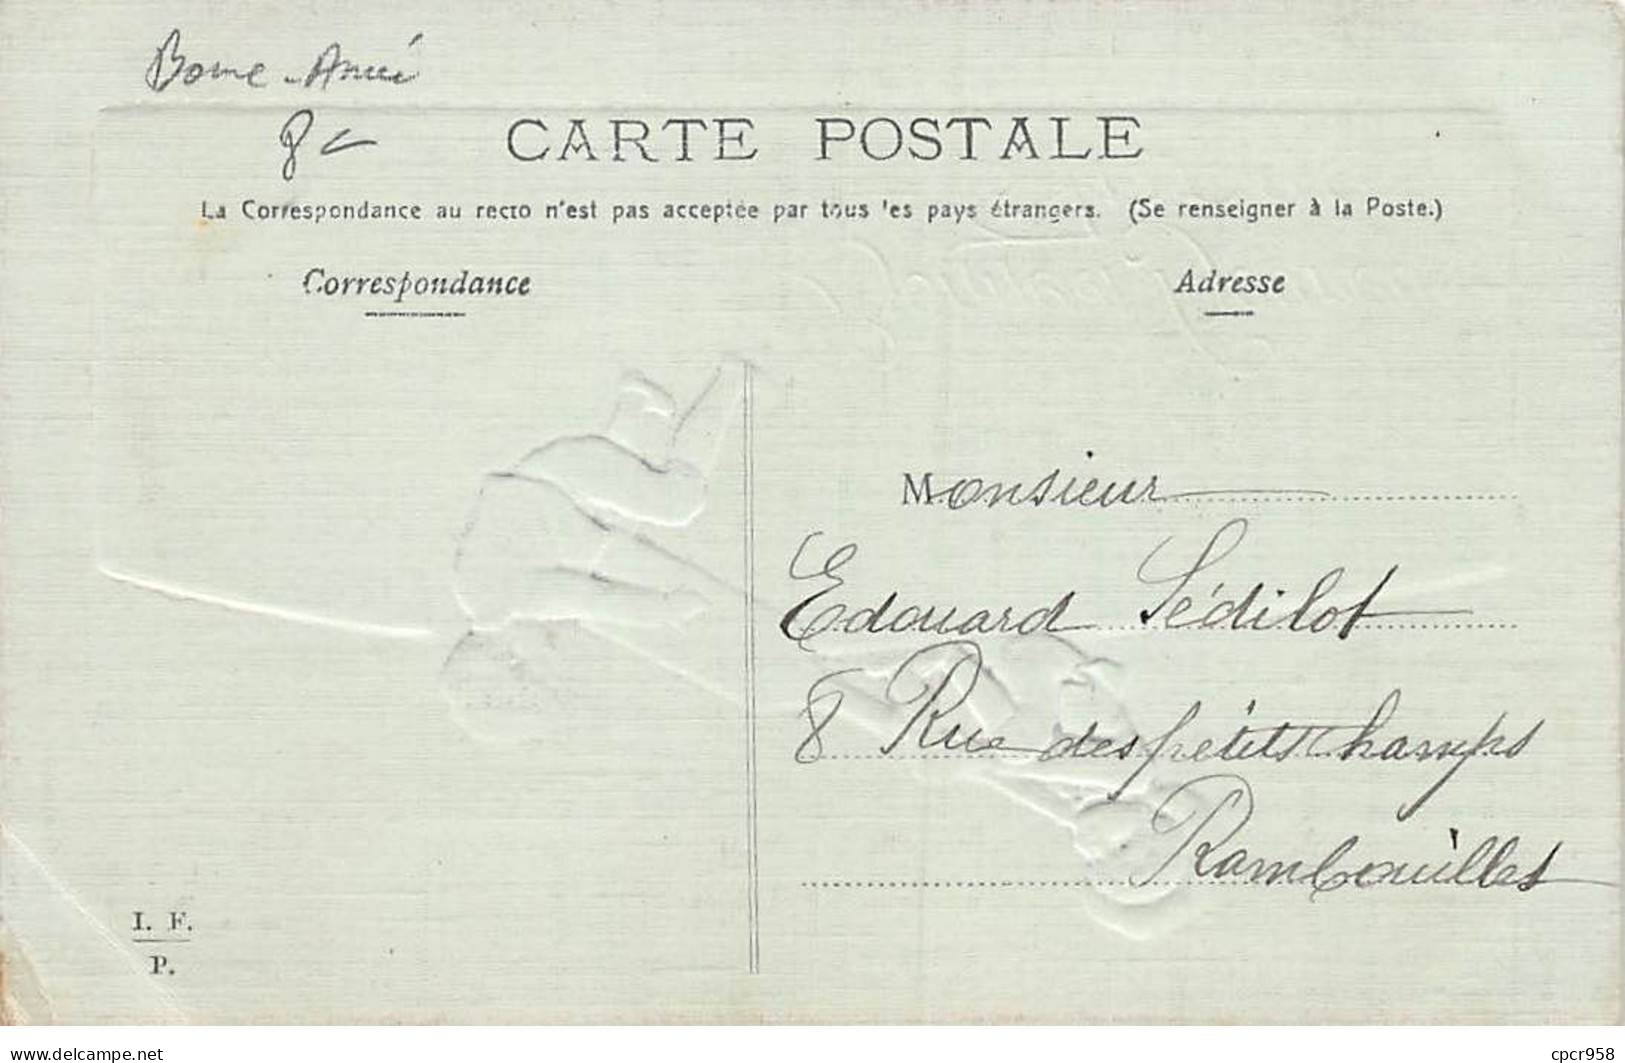 Bonne Année
8
CARTE POSTALE
La Correspondance au recto n'est pas acceptée par tous les pays étrangers. (Se renseigner à la Poste.)
Correspondance
Adresse
Monsieur
Edouard Sédilot
8 Rue des petits champs
Rambouillet
I. F.
P.
www.delcampe.net
cpcr958